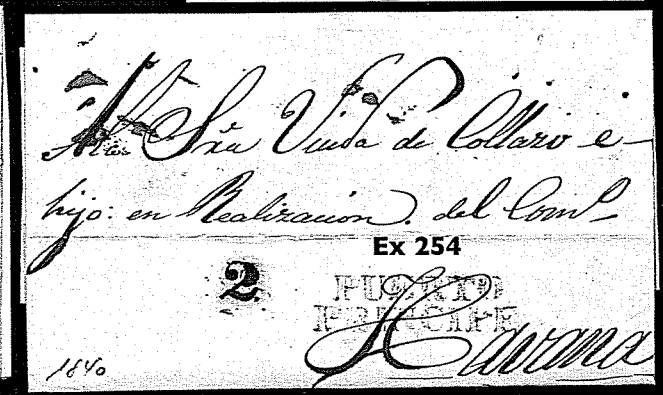 Sra Viuda de Collazo e
hijo: en Realizacion. del Como
Ex 254
2
PUERTO
PRINCIPE
Havana
1840